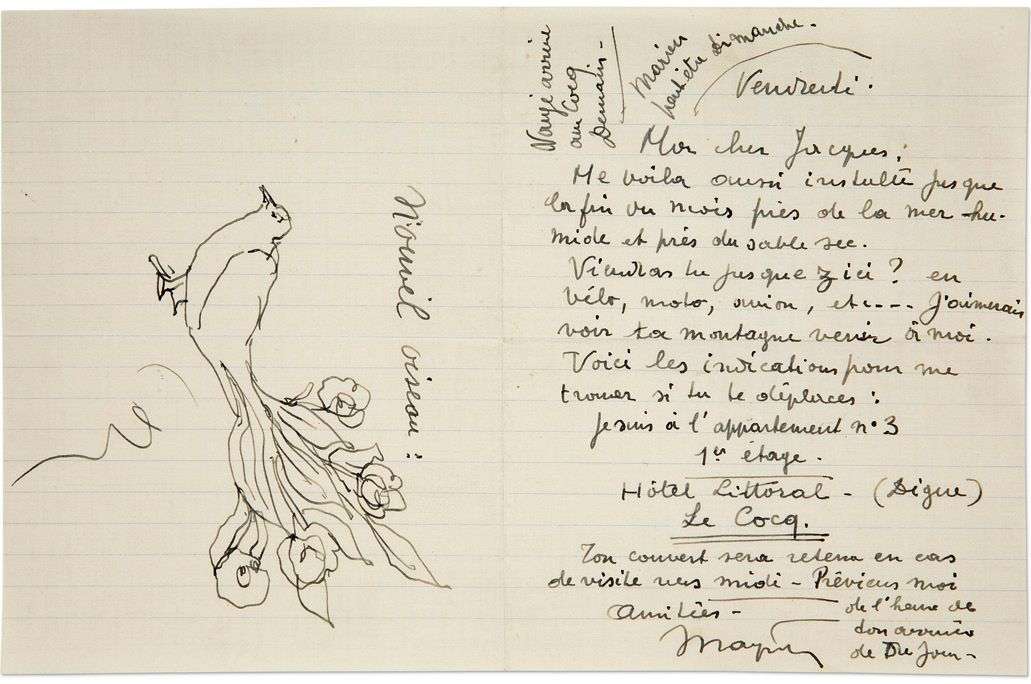 Nougé arrive
au Cocq
Demain -
Marien
peut-être dimanche.
Vendredi.
Mon cher Jacques,
Me voilà aussi installé jusque
la fin du mois près de la mer hu-
mide et près du sable sec.
Viendras tu jusque z ici ? en
vélo, moto, avion, etc--- J'aimerais
voir ta montagne venir à moi.
Voici les indications pour me
trouver si tu te déplaces :
Je suis à l'appartement n°3
1er étage.
Hôtel Littoral - (Digue)
Le Cocq.
Ton couvert sera retenu en cas
de visite vers midi - Préviens moi
de l'heure de
ton arrivée
Amitiés -
Nouvel oiseau :